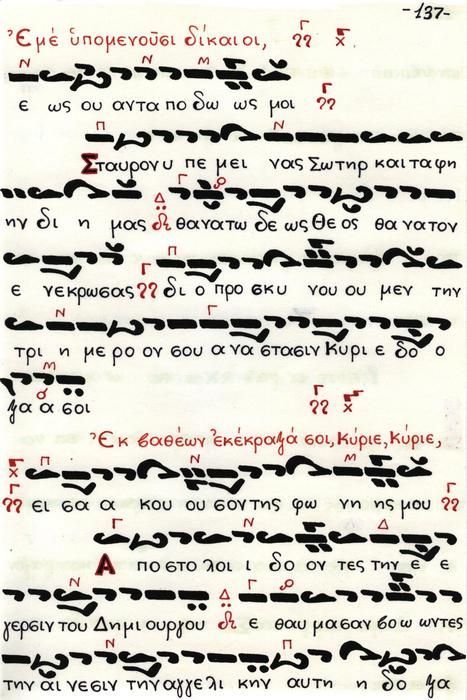 -137-
Ἐμέ ὑπομενοῦσι δίκαιοι,
ε ως ου αντα πο δω ως μοι
Σταυρον υ πε μει νας Σωτηρ και ταφη
ην δι η μας θανατω δε ως Θε ος θα νατον
ε νεκρωσας δι ο προ σκυ νου ου μεν την
τρι η με ρο ον σου α να στασιν Κυρι ε δο ο
ξα α σοι
Ἐκ βαθέων ἐκέκραξά σοι, Κύριε, Κύριε,
ει σα α κου ου σον της φω νη ης μου
Α πο στο λοι ι δο ον τες την ε ε
γερσιν του Δημι ουργου ε θαυ μασαν βο ω ωντες
την αι νεσιν την αγγε λι κην αυτη η δο ξα